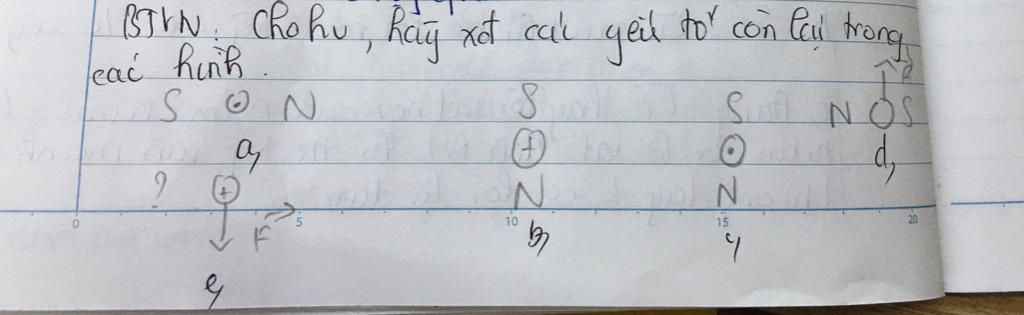 BTVN: Cho hv, hãy xđ các yếu tố còn lại trong
các hình.
S ⊙ N S S N O S
a, ⊕ ⊙ d,
? ⊕ N N
0 5 10 15 20
F b, c,
e,